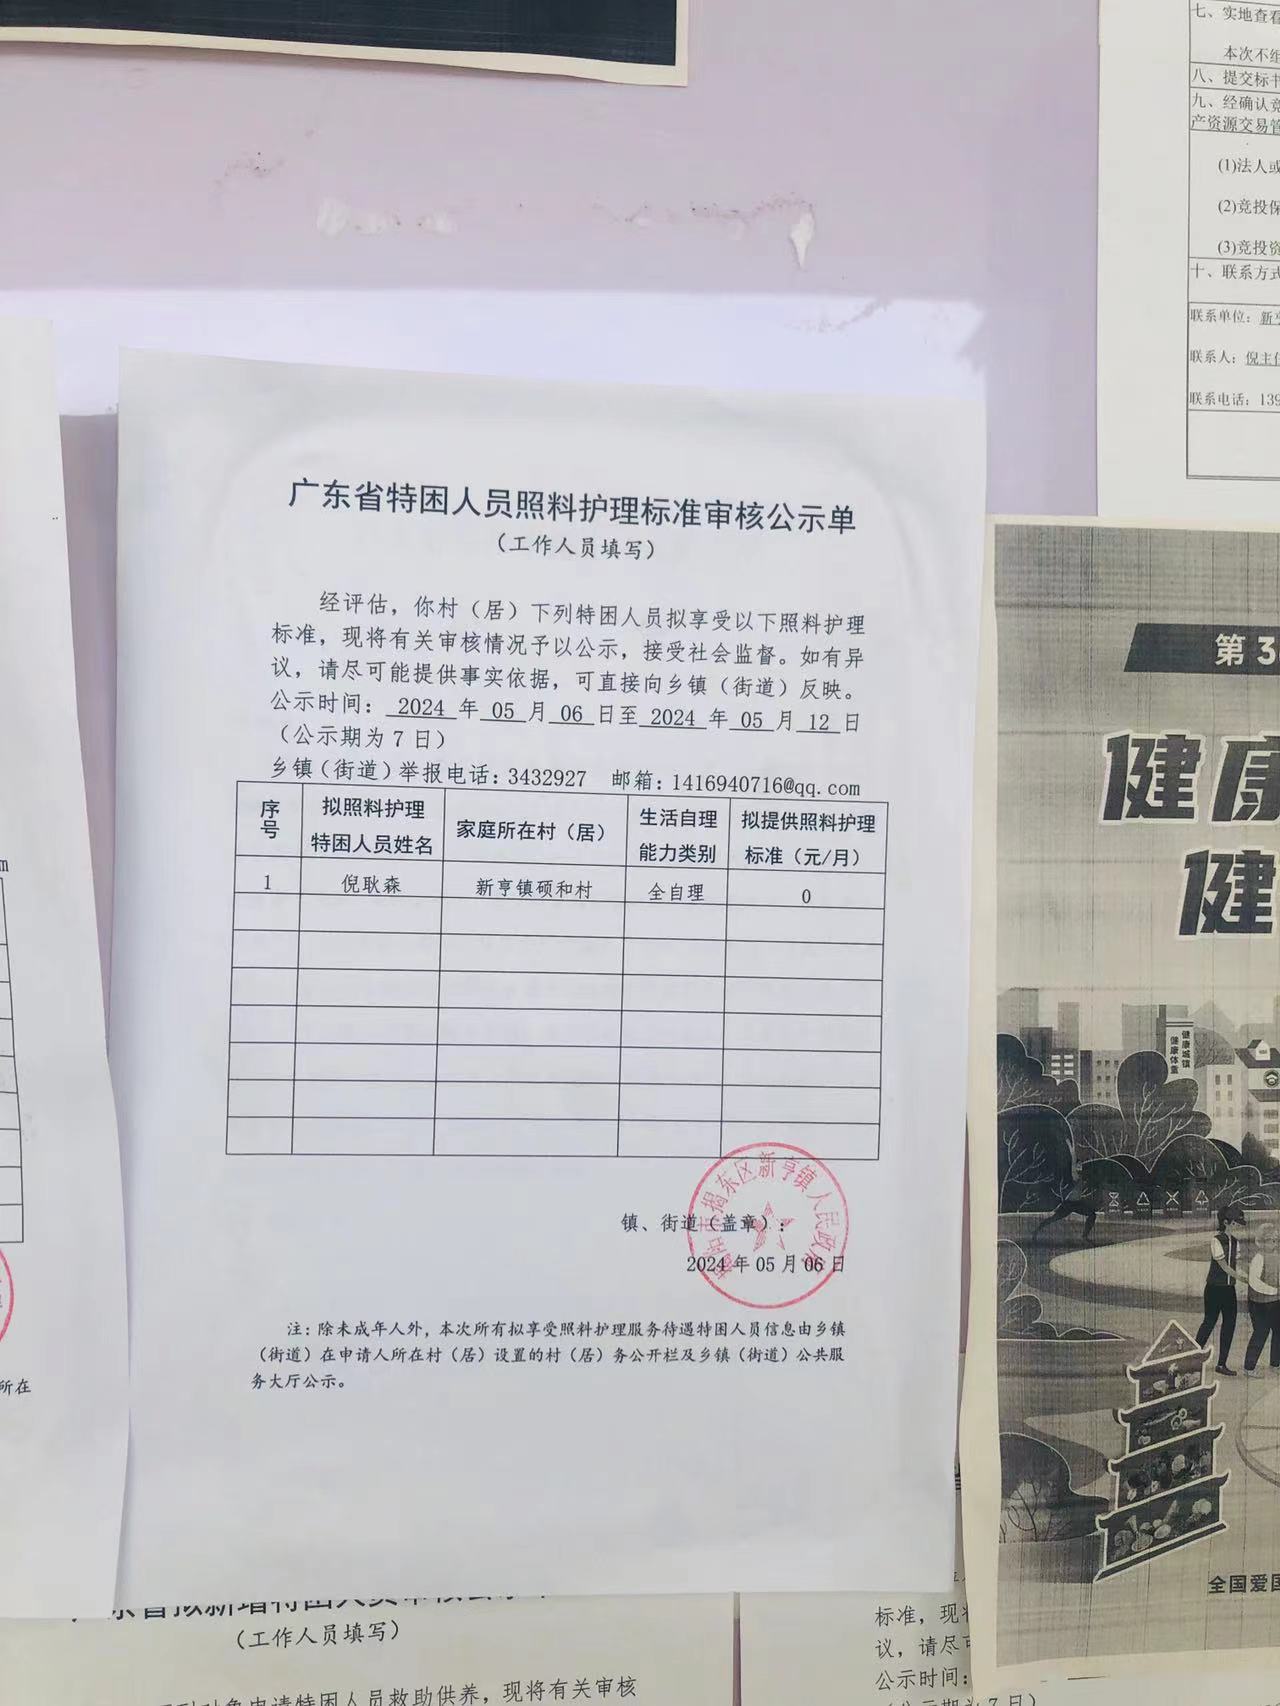 七、实地查看
本次不组
八、提交标书
九、经确认竞
产资源交易管
(1)法人或
(2)竞投保
(3)竞投资
十、联系方式
联系单位：新亨
联系人：倪主任
联系电话：139
广东省特困人员照料护理标准审核公示单
（工作人员填写）
经评估，你村（居）下列特困人员拟享受以下照料护理
标准，现将有关审核情况予以公示，接受社会监督。如有异
议，请尽可能提供事实依据，可直接向乡镇（街道）反映。
公示时间：2024 年 05 月 06 日至 2024 年 05 月 12 日
（公示期为 7 日）
乡镇（街道）举报电话：3432927 邮箱：1416940716@qq.com
序号 拟照料护理特困人员姓名 家庭所在村（居） 生活自理能力类别 拟提供照料护理标准（元/月）
1 倪耿森 新亨镇硕和村 全自理 0
揭阳市揭东区新亨镇人民政府
镇、街道（盖章）：
2024 年 05 月 06 日
注：除未成年人外，本次所有拟享受照料护理服务待遇特困人员信息由乡镇
（街道）在申请人所在村（居）设置的村（居）务公开栏及乡镇（街道）公共服
务大厅公示。
m
所在
第 36
健康
健
健康城镇
健康体重
全国爱国
东省拟新增特困人员审核公示单
（工作人员填写）
对象申请特困人员救助供养，现将有关审核
标准，现将
议，请尽可
公示时间：
（公示期为 7 日）